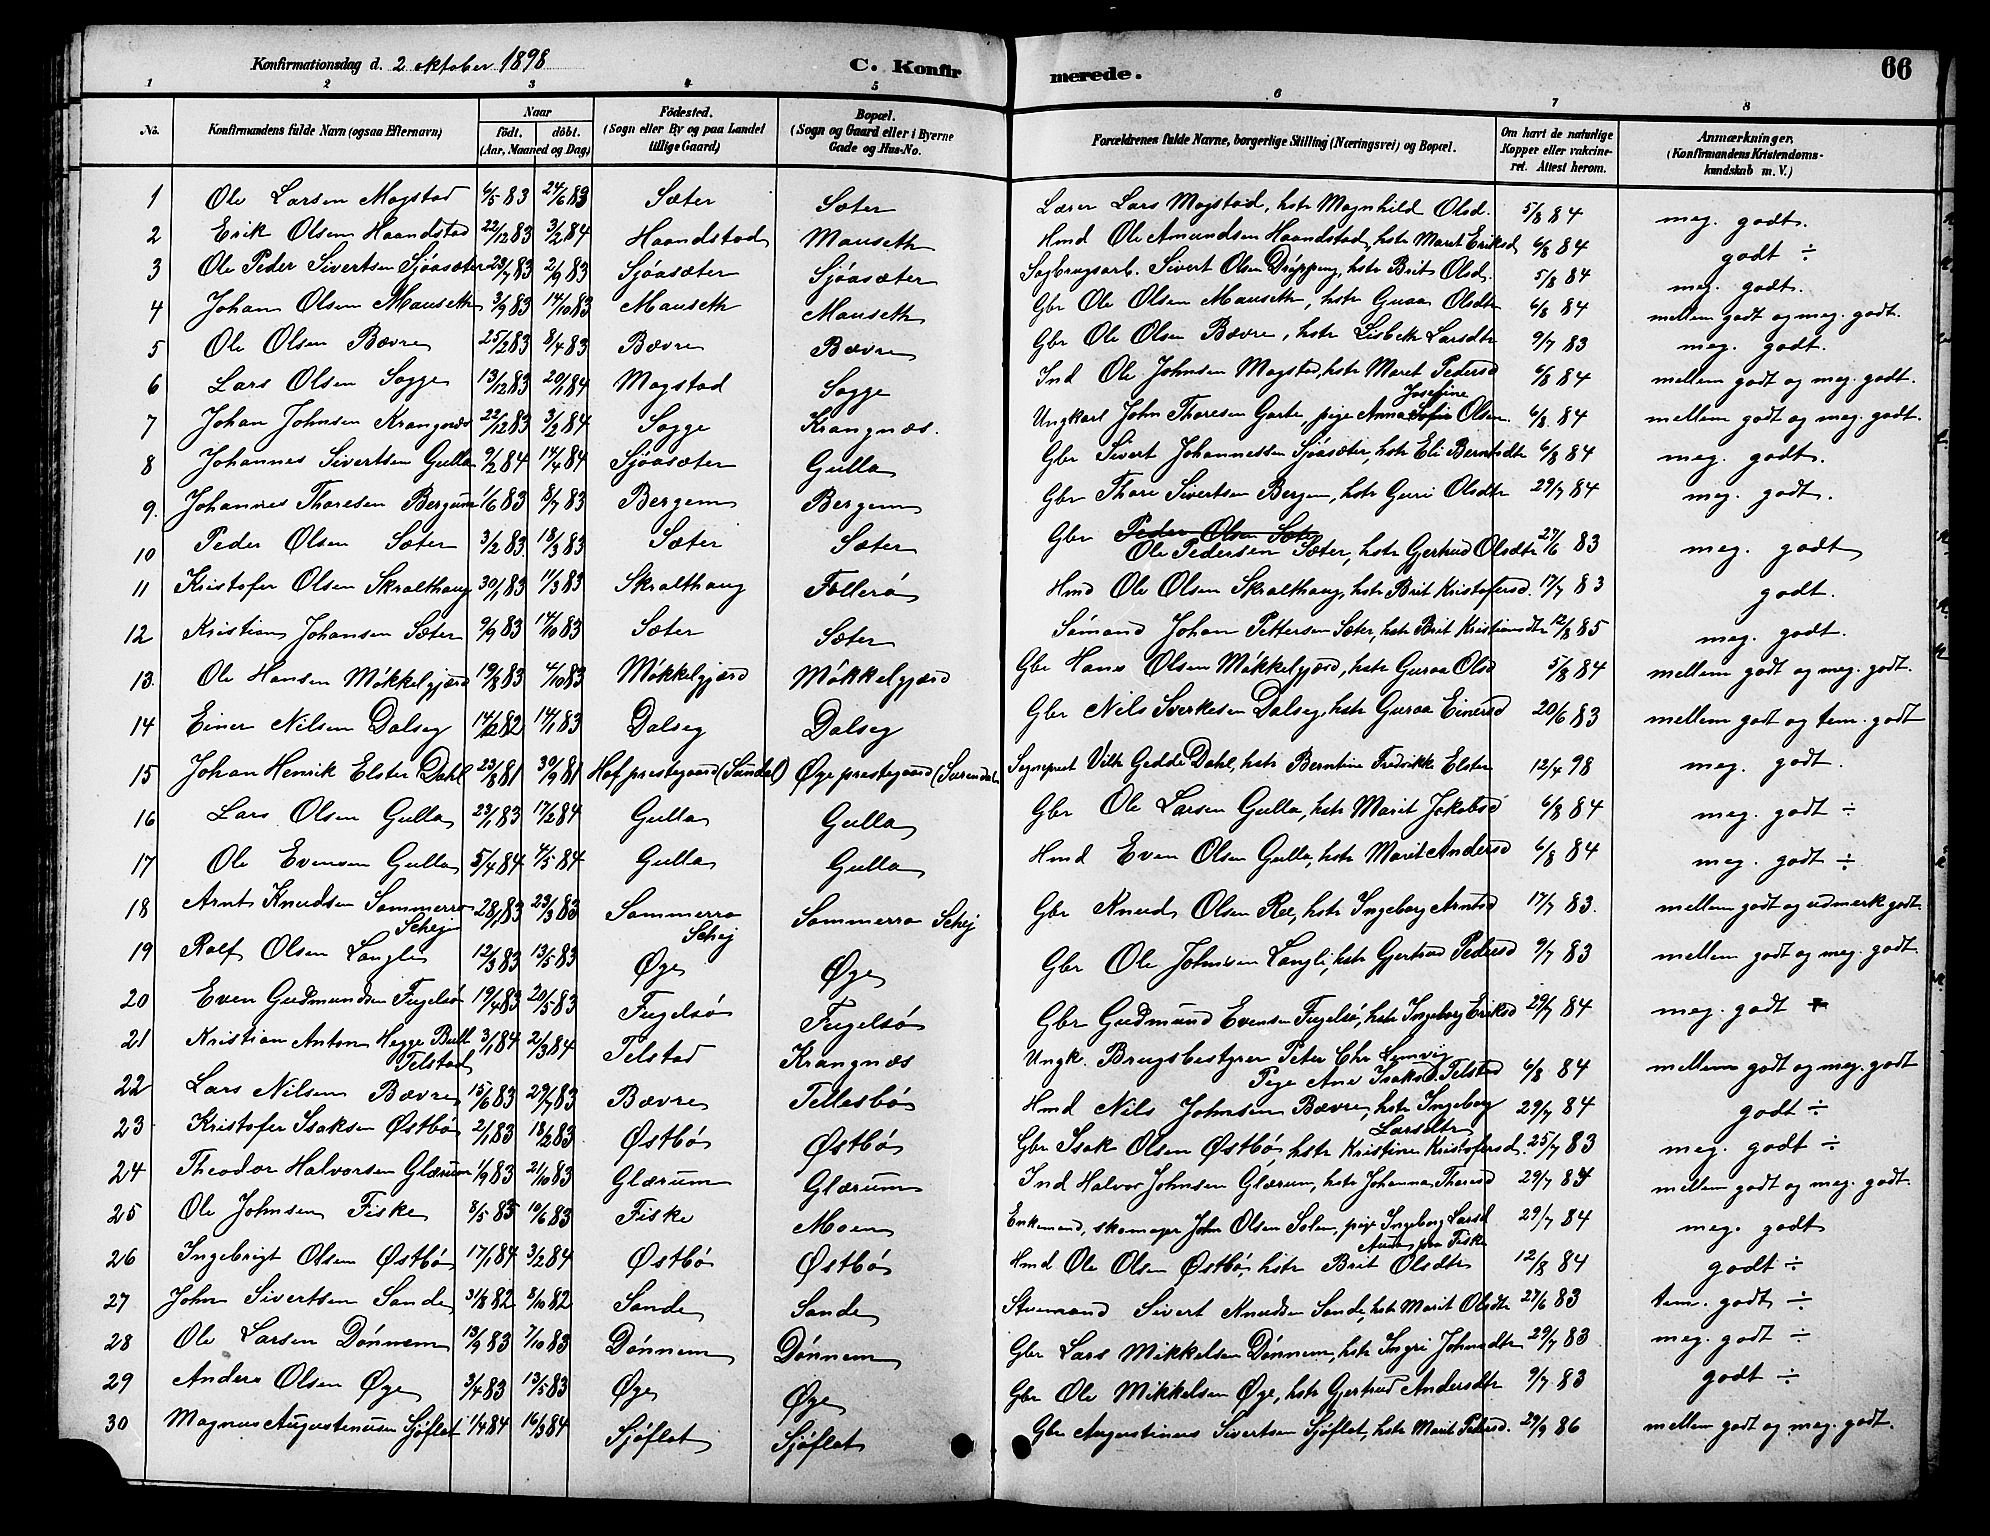 Konfirmationsdag d. 2 oktober 1898 C. Konfirmerede. 66
1 2 3 4 5 6 7 8
No. Konfirmandens fulde Navn (ogsaa Efternavn) Naar født. døbt. (Aar, Maaned og Dag) Födested. (Sogn eller By og paa Landet tillige Gaard) Bopæl. (Sogn og Gaard eller i Byerne Gade og Hus-No. Forældrenes fulde Navne, borgerlige Stilling (Næringsvei) og Bopæl. Om havt de naturlige Kopper eller vakcineret. Attest herom. Anmærkninger. (Konfirmandens Kristendomskundskab m. V.)
1 Ole Larsen Mogstad 6/5 83 24/6 83 Sæter Sæter Lærer Lars Mogstad, hstr Magnhild Olsd. 5/8 84 meg. godt.
2 Erik Olsen Haandstad 22/12 83 3/2 84 Haandstad Mauseth Hmd Ole Amundsen Haandstad, hstr Maret Eriksd 6/8 84 godt ÷
3 Ole Peder Sivertsen Sjøasæter 23/7 83 2/9 83 Sjøasæter Sjøasæter Sagbrugsarb. Sivert Olsen Drøpping, hstr Brit Olsd. 5/8 84 meg. godt.
4 Johan Olsen Mauseth 3/9 83 14/10 83 Mauseth Mauseth Gbr Ole Olsen Mauseth, hstr Guraa Olsdtr 6/8 84 mellem godt og meg. godt.
5 Ole Olsen Bævre 25/2 83 8/4 83 Bævre Bævre Gbr Ole Olsen Bævre, hstr Lisbeth Larsdtr 9/7 83 meg. godt.
6 Lars Olsen Sogge 13/12 83 20/1 84 Mogstad Sogge Ind Ole Johnsen Mogstad, hstr Maret Pedersd 6/8 84 mellem godt og meg. godt.
7 Johan Johnsen Krangnæs 22/12 83 3/2 84 Sogge Krangnæs. Ungkarl John Thoresen Garte, pige Anna Sofie Josefine Olsen. 6/8 84 mellem godt og meg. godt.
8 Johannes Sivertsen Gulla 9/2 84 14/4 84 Sjøasæter Gulla Gbr Sivert Johannessen Sjøasæter, hstr Eli Berntsdtr 6/8 84 meg. godt.
9. Johannes Thoresen Bergem 1/6 83 8/7 83 Bergem Bergem Gbr Thore Sivertsen Bergem, hstr Guri Olsdtr 29/7 84 meg. godt.
10 Peder Olsen Sæter 3/2 83 18/3 83 Sæter Sæter Gbr Peder Olsen Sæter
Ole Pedersen Sæter, hstr Gjertrud Olsdtr 27/6 83 meg. godt
11 Kristofer Olsen Skralthaug 30/1 83 11/3 83 Skralthaug Follerø Hmd Ole Olsen Skralthaug, hstr Brit Kristofersd. 17/7 83 godt.
12 Kristian Johansen Sæter 9/9 83 14/10 83 Sæter Sæter Sømand Johan Pettersen Sæter, hstr Brit Kristiansdtr 12/8 85 meg. godt.
13. Ole Hansen Møkkelgjærd 19/8 83 4/10 83 Møkkelgjærd Møkkelgjærd Gbr Hans Olsen Møkkelgjærd, hstr Guraa Olsd 5/8 84 mellem godt og meg. godt.
14 Einer Nilsen Dalseg 14/12 82 14/1 83 Dalseg Dalseg Gbr Nils Sverkesen Dalseg, hstr Guraa Einersd 20/6 83 mellem godt og tem. godt
15 Johan Henrik Elster Dahl 23/8 81 30/9 81 Hof prestegaard (Sundal) Øye prestegaard (Surendal Sognepræst Vilh Gedde Dahl, hstr Berntine Fredrikke Elster 12/4 98 meg. godt.
16 Lars Olsen Gulla 23/1 83 17/2 84 Gulla Gulla Gbr Ole Larsen Gulla, hstr Marit Jakobsd 6/8 84 meg. godt ÷
17 Ole Evensen Gulla 5/4 84 4/5 84 Gulla Gulla Hmd Even Olsen Gulla, hstr Marit Andersd 6/8 84 meg. godt ÷
18 Arnt Knudsen Sommerro Schej 28/1 83 23/3 83 Sommerro Schej Sommerro Schej Gbr Knud Olsen Ree, hstr Ingeborg Arntsd 17/7 83. mellem godt og udmerk godt.
19 Rolf Olsen Langli 12/3 83 13/5 83 Øye Øye Gbr Ole Johnsen Langli, hstr Gjertrud Pedersd 9/7 83 mellem godt og meg. godt.
20 Even Gudmundsen Fugelsø 19/4 83 20/5 83 Fugelsø Fugelsø Gbr Gudmund Evensen Fugelsø, hstr Ingeborg Eriksd 29/7 84 meg. godt
21 Kristian Anton Hegge Bull Telstad 3/1 84 2/3 84 Telstad Krangnæs Ungk. Brugsbestyrer Peter Chr Lemvig
Pige Ane Isaksd. Telstad 6/8 84 mellem godt og meg. godt
22 Lars Nilsen Bævre 15/6 83 29/7 83 Bævre Tellesbø Hmd Nils Johnsen Bævre, hstr Ingeborg Larsdtr 29/7 84 godt ÷
23 Kristofer Isaksen Østbø 2/1 83 18/2 83 Østbø Østbø Gbr Isak Olsen Østbø hstr Kristine Kristofersd. 25/7 83 meg. godt ÷
24 Theodor Halvorsen Glærum 1/9 83 21/10 83 Glærum Glærum Ind Halvor Johnsen Glærum, hstr Johanna Thoresd 29/7 84 mellem godt og meg. godt
25 Ole Johnsen Fiske 8/5 83 10/6 83 Fiske Moen Enkemand, skomager John Olsen Solem, pige Ingeborg Larsd
Aune paa Fiske 29/7 84 meg. godt
26 Ingebrigt Olsen Østbø 17/1 84 3/2 84 Østbø Østbø Hmd Ole Olsen Østbø, hstr Brit Olsdtr 12/8 84 godt ÷
27 John Sivertsen Sande 31/8 82 8/10 82 Sande Sande Struemand Sivert Knudsen Sande, hstr Marit Olsdtr 27/6 83 tem. godt ÷
28 Ole Larsen Dønnem 13/9 83 7/10 83 Dønnem Dønnem Gbr Lars Mikkelsen Dønnem, hstr Ingri Johnsdtr 29/7 83 meg. godt ÷
29 Anders Olsen Øye 3/4 83 13/5 83 Øye Øye Gbr Ole Mikkelsen Øye, hstr Gjertrud Andersdtr 9/7 83 godt ÷
30 Magnus Augustinusen Sjøflot 1/4 84 16/3 84 Sjøflot Sjøflot Gbr Augustinus Sivertsen Sjøflot, hstr Marit Pedersd. 29/9 86 mellem godt og meg. godt.